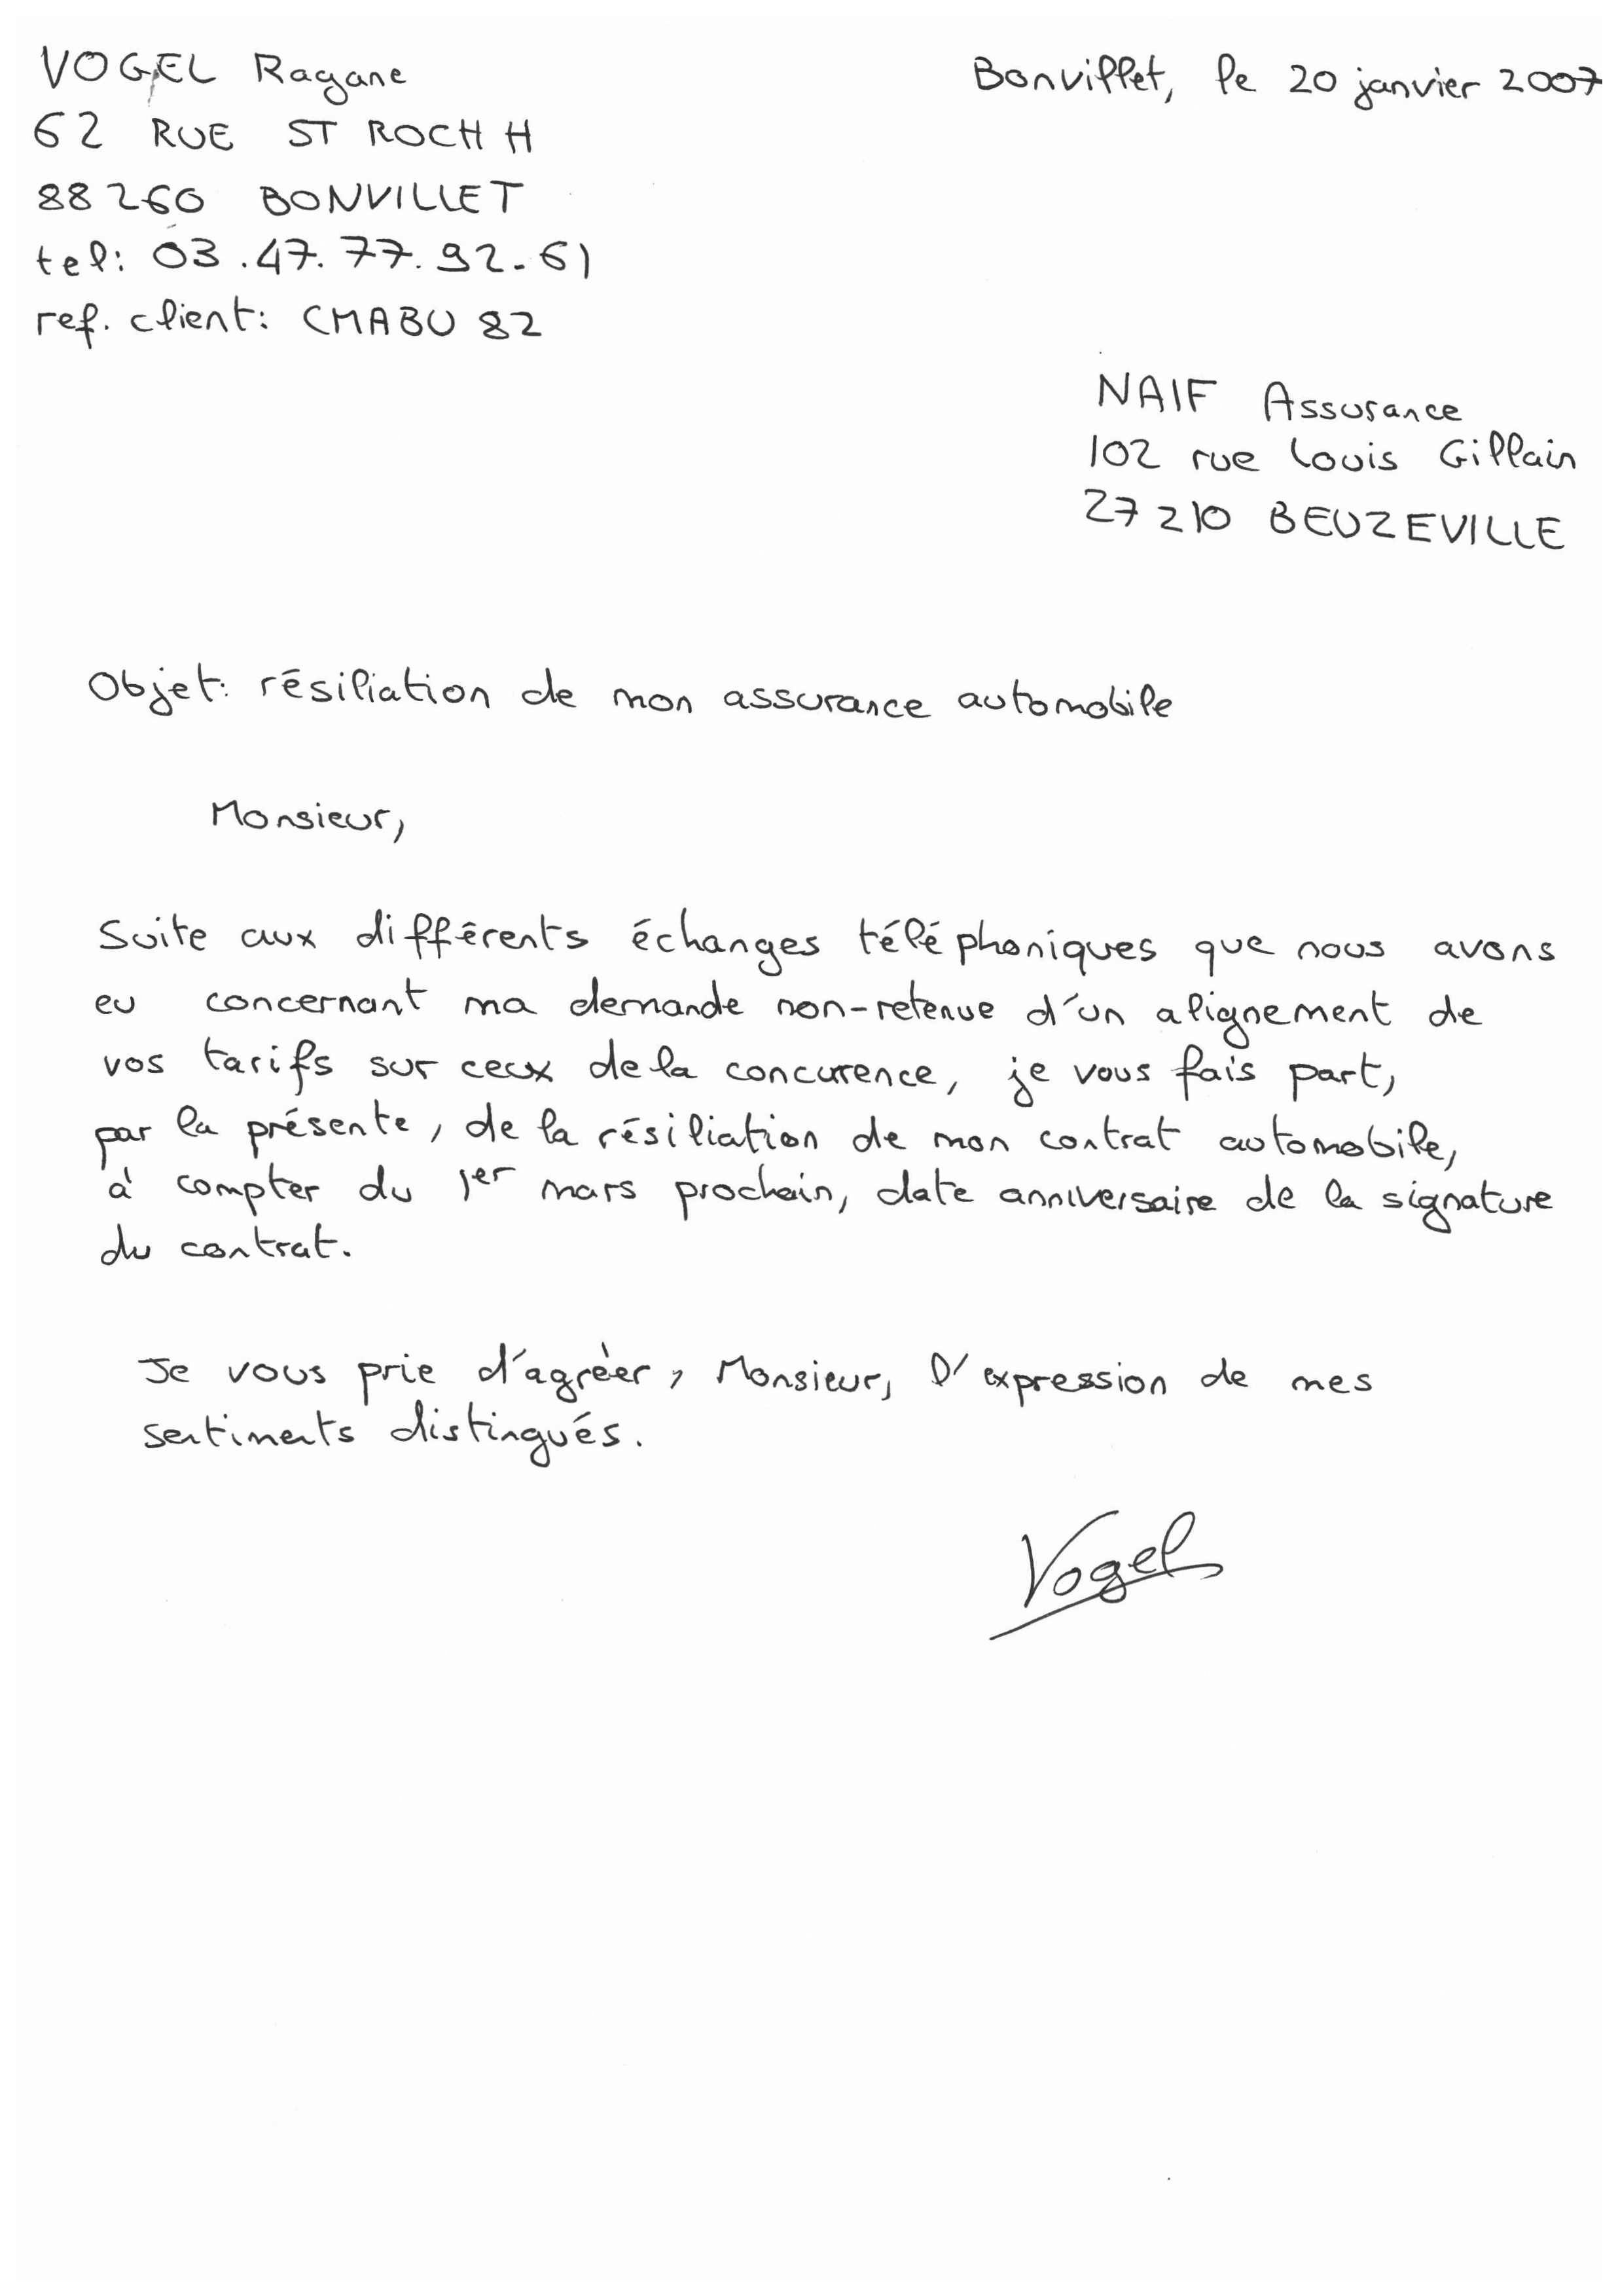 VOGEL Ragane
Bonvillet, le 20 janvier 2007
62 RUE ST ROCH H
88260 BONVILLET
tel: 03.47.77.92.61
ref. client: CMABU 82
NAIF Assurance
102 rue Louis Gillain
27210 BEUZEVILLE
Objet: résiliation de mon assurance automobile
Monsieur,
Suite aux différents échanges téléphoniques que nous avons
eu concernant ma demande non-retenue d'un alignement de
vos tarifs sur ceux de la concurence, je vous fais part,
par la présente, de la résiliation de mon contrat automobile,
à compter du 1er mars prochain, date anniversaire de la signature
du contrat.
Je vous prie d'agréer, Monsieur, l'expression de mes
sentiments distingués.
Vogel